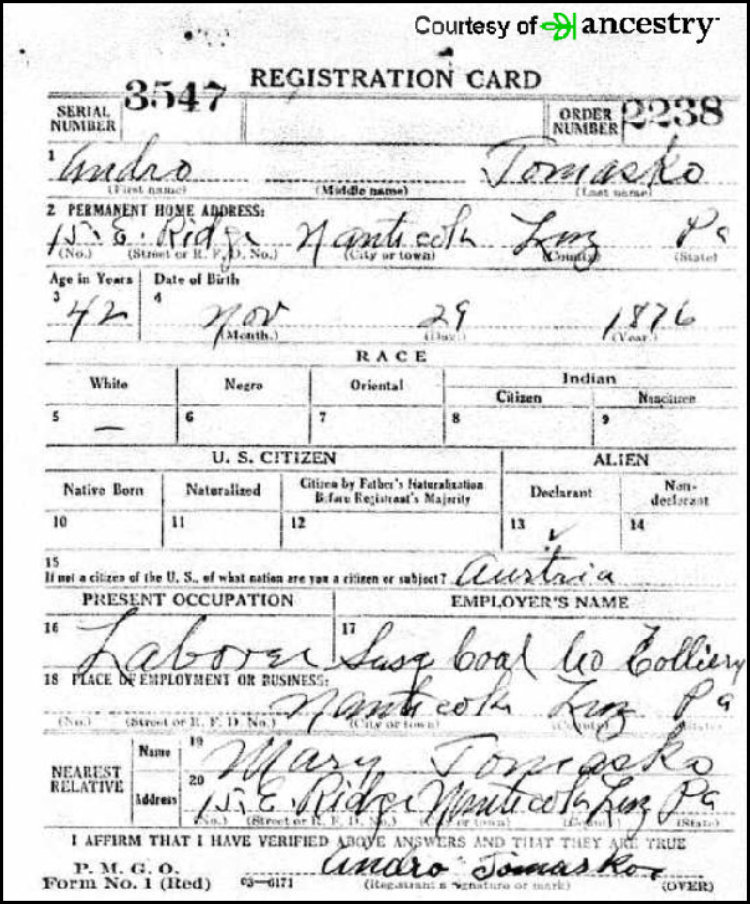 Courtesy of ancestry
REGISTRATION CARD
SERIAL NUMBER 3547 ORDER NUMBER 2238
1 Andro Tomasko
(First name) (Middle name) (Last name)
2 PERMANENT HOME ADDRESS:
E. Ridge Nanticok Luz Pa
(No.) (Street or R. F. D. No.) (City or town) (County) (State)
Age in Years Date of Birth
3 42 4 Nov 29 1876
(Month.) (Day.) (Year.)
RACE
White Negro Oriental Indian
Citizen Noncitizen
5 — 6 7 8 9
U. S. CITIZEN ALIEN
Native Born Naturalized Citizen by Father's Naturalization Before Registrant's Majority Declarant Non-declarant
10 11 12 13 ✓ 14
15
If not a citizen of the U. S., of what nation are you a citizen or subject? Austria
PRESENT OCCUPATION EMPLOYER'S NAME
16 Laborer 17 Susq Coal Co Colliery
18 PLACE OF EMPLOYMENT OR BUSINESS:
Nanticok Luz Pa
(No.) (Street or R. F. D. No.) (City or town) (County) (State)
NEAREST RELATIVE
Name 19 Mary Tomasko
Address 20 E. Ridge Nanticok Luz Pa
(No.) (Street or R. F. D. No.) (City or town) (County) (State)
I AFFIRM THAT I HAVE VERIFIED ABOVE ANSWERS AND THAT THEY ARE TRUE
P. M. G. O.
Form No. 1 (Red) 03—6171 Andro Tomasko
(Registrant's signature or mark) (OVER)